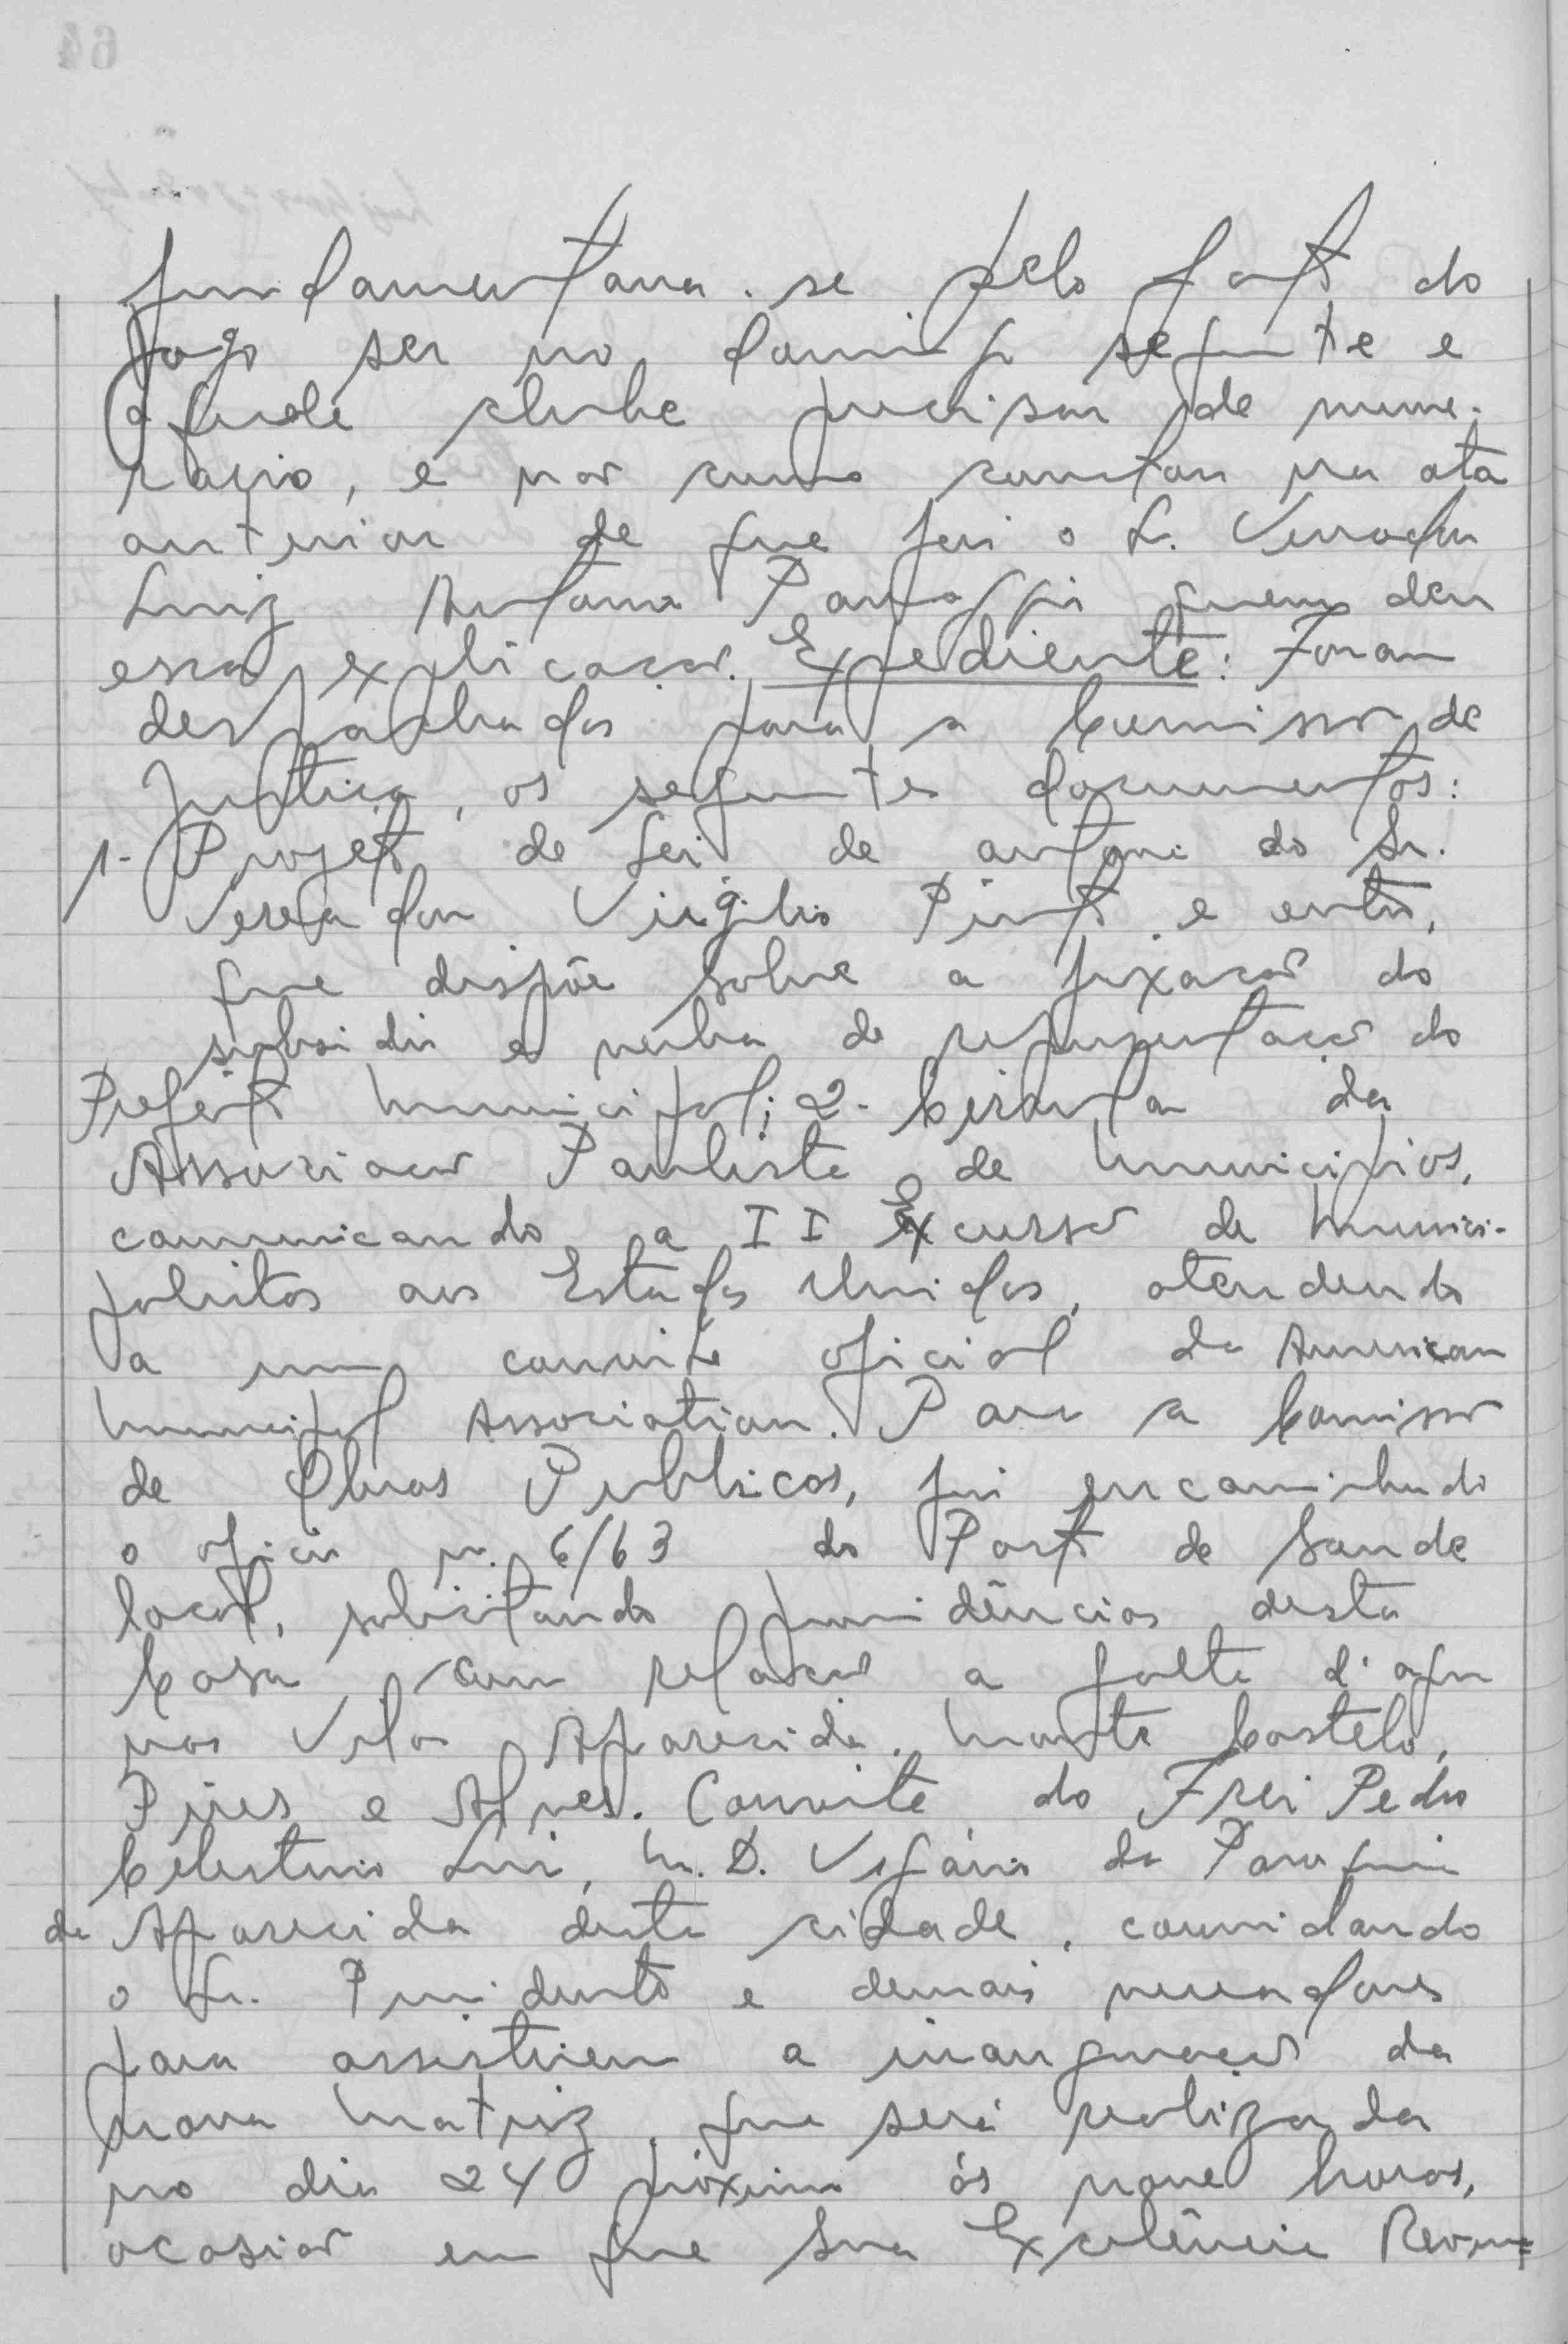 fundamentava-se pelo fato do
jogo ser no domingo seguinte e
aquele clube precisar de nume-
rário, e não como constou na ata
anterior de que foi o Sr. Vereador
Luiz Antonio quem deu
essa explicação. Expediente: Foram
despachados para a Comissão de
Justiça, os seguintes documentos:
1- Projeto de Lei de autoria do Sr.
Vereador Virgilio Pinto e outros,
que dispõe sobre a fixação do
subsidio e verba de representação do
Prefeito Municipal; 2- Circular da
Associação Paulista de Municipios,
comunicando a II Excursão de Munici-
palistas aos Estados Unidos, atendendo
a um convite oficial da American
Municipal Association. Para a Comissão
de Obras Publicas, foi encaminhado
o oficio n. 6/63 do Posto de Saude
local, solicitando providências desta
Casa com relação a falta d'agua
nas Vilas Aparecida, Monte Castelo,
Pires e Alves. Convite do Frei Pedro
Celestino, M. D. Vigário da Paroquia
de Aparecida desta cidade, convidando
o Sr. Presidente e demais vereadores
para assistirem a inauguração da
nova Matriz, que será realizada
no dia 24 próximo ás nove horas,
ocasião em que Sua Excelência Revm=
64